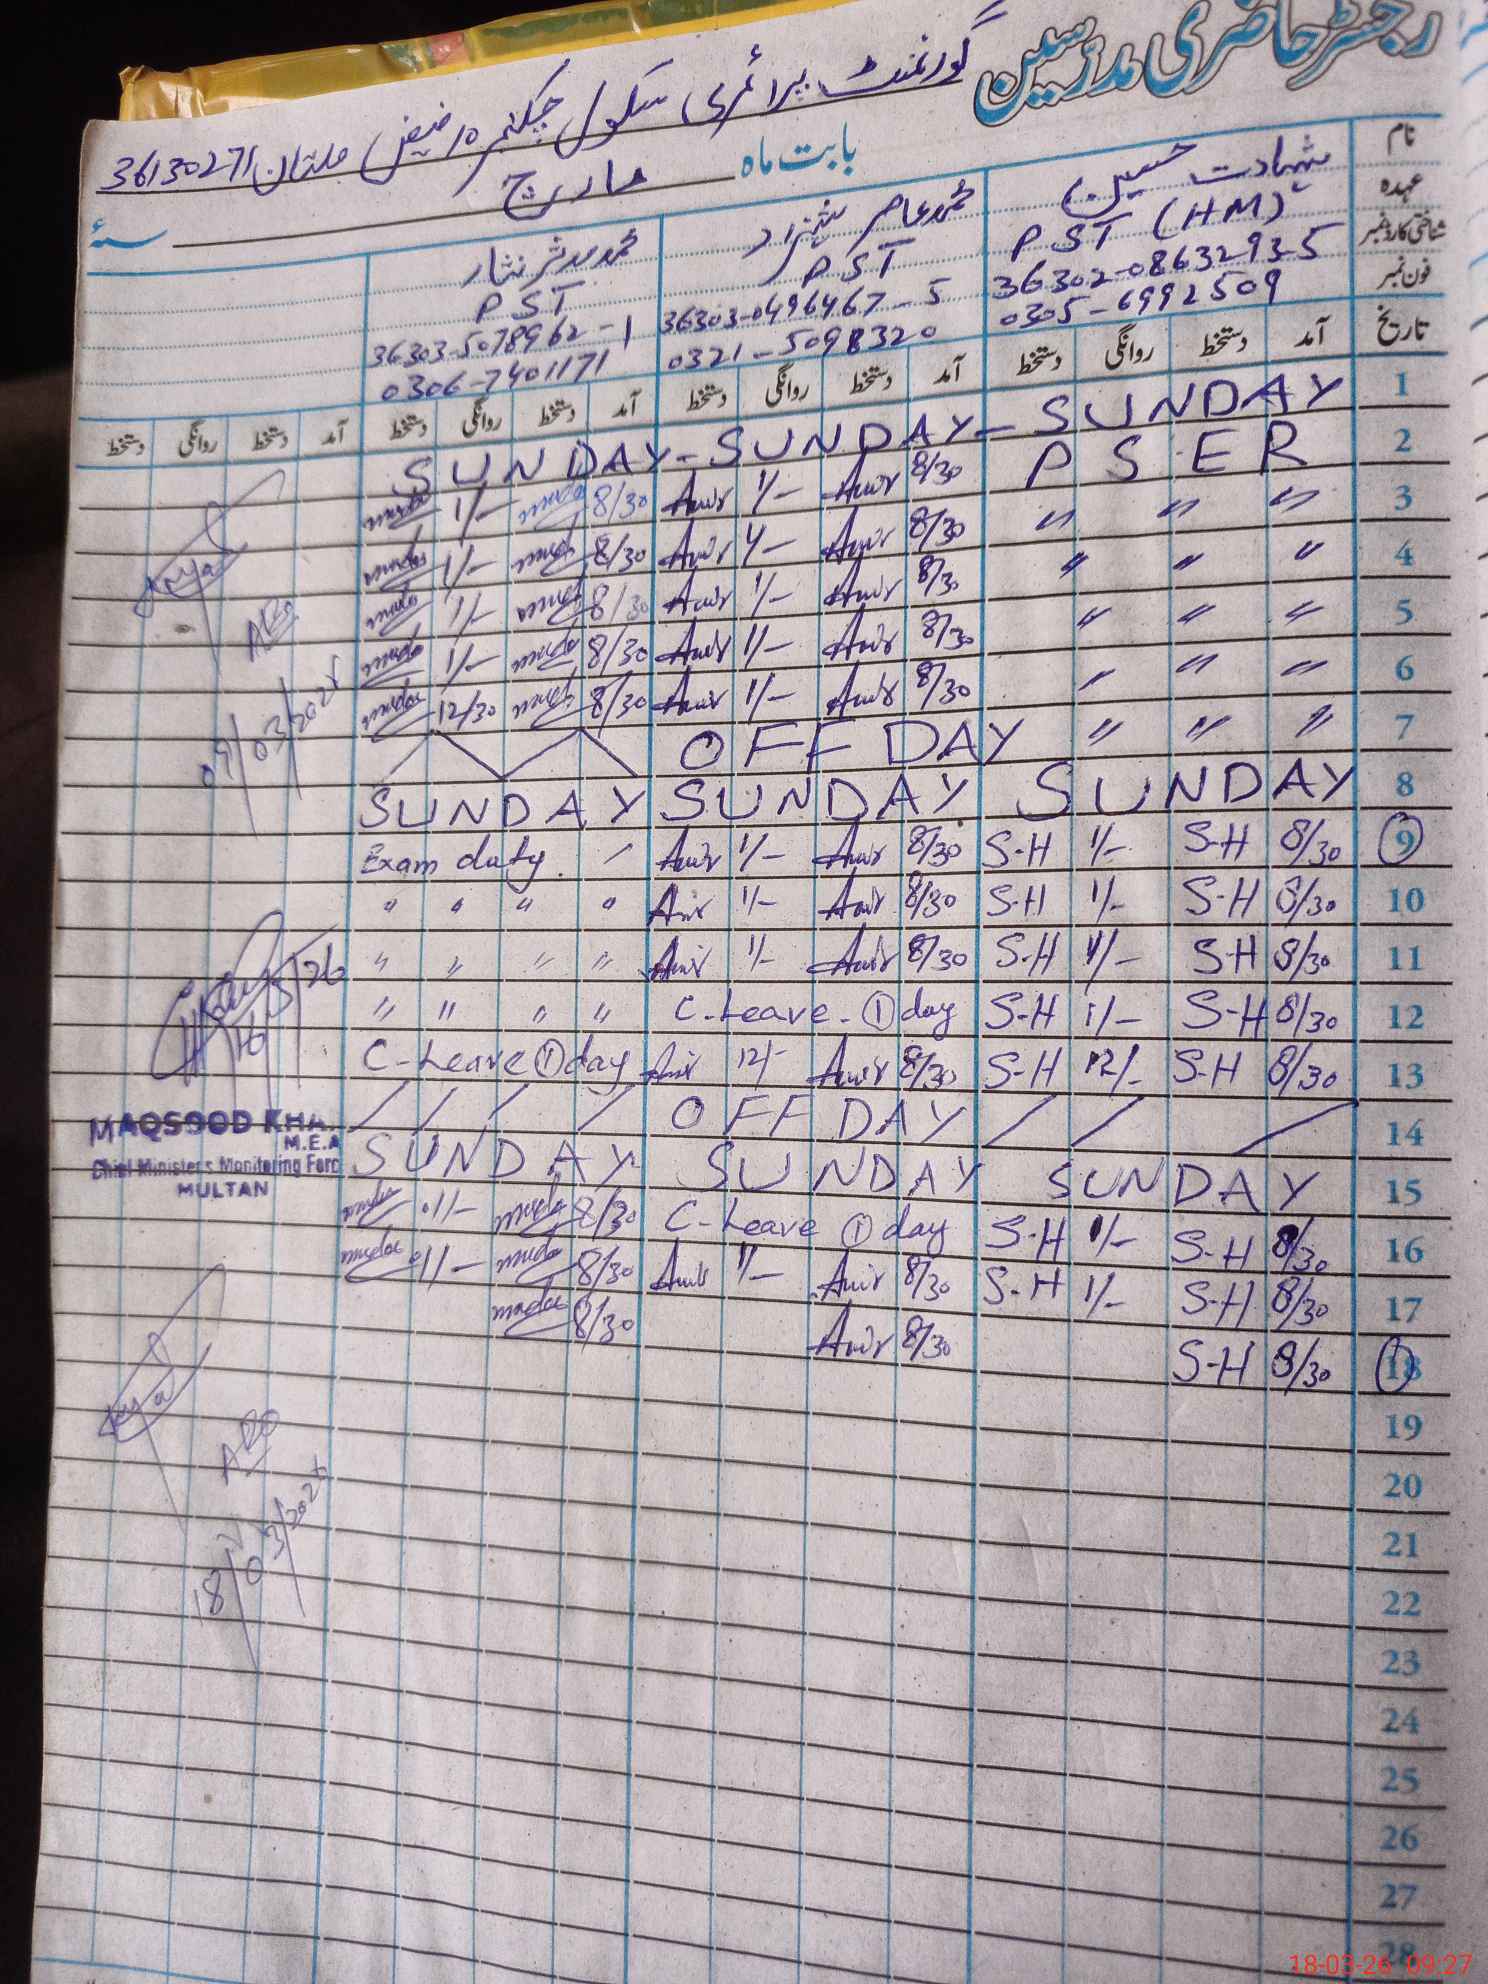 رجسٹر حاضری مدرسین
گورنمنٹ پرائمری سکول ملتان 36130271
بابت ماہ مارچ سنہ
نام شہادت حسین محمد عامر شہزاد محمد مدثر نثار
عہدہ PST (HM) PST PST
شناختی کارڈ نمبر 36302-0863293-5 36303-0496467-5 36303-5078962-1
فون نمبر 0305-6992509 0321-5098320 0306-7401171
تاریخ آمد دستخط روانگی دستخط آمد دستخط روانگی دستخط آمد دستخط روانگی دستخط آمد دستخط روانگی دستخط
SUNDAY - SUNDAY - SUNDAY 1
1/- 8/30 Amir 1/- Amir 8/30 PSER 2
1/- 8/30 Amir 1/- Amir 8/30 " " " 3
1/- 8/30 Amir 1/- Amir 8/30 " " " 4
1/- 8/30 Amir 1/- Amir 8/30 " " " 5
12/30 8/30 Amir 1/- Amir 8/30 " " " 6
OFF DAY " " " 7
SUNDAY SUNDAY SUNDAY 8
Exam duty. Amir 1/- Amir 8/30 S-H 1/- S-H 8/30 9
" " " " Amir 1/- Amir 8/30 S-H 1/- S-H 8/30 10
" " " " Amir 1/- Amir 8/30 S-H 1/- S-H 8/30 11
" " " " C-Leave-1 day S-H 1/- S-H 8/30 12
C-Leave 1 day Amir 12/- Amir 8/30 S-H 12/- S-H 8/30 13
OFF DAY 14
SUNDAY SUNDAY SUNDAY 15
01/- 8/30 C-Leave 1 day S-H 1/- S-H 8/30 16
01/- 8/30 Amir 1/- Amir 8/30 S-H 1/- S-H 8/30 17
8/30 Amir 8/30 S-H 8/30 18
19
20
21
22
23
24
25
26
27
28
09/03/2026
MAQSOOD KHA
M.E.A
Chief Minister's Monitoring Forc
MULTAN
18/03/2026
18-03-26 09:27